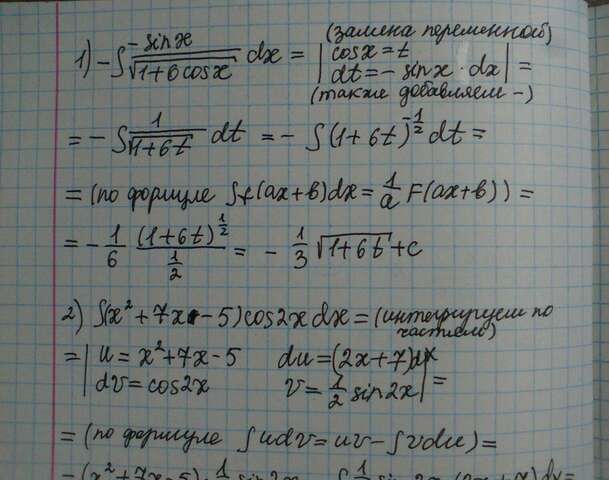 (замена переменной)
1) -∫ -sinx / √(1+6cosx) dx = | cosx=t
dt=-sinx·dx | =
(также добавляем -)
= -∫ 1/√(1+6t) dt = - ∫(1+6t)^(-1/2) dt =
= (по формуле ∫f(ax+b)dx = 1/a F(ax+b)) =
= -1/6 (1+6t)^(1/2) / (1/2) = - 1/3 √(1+6t) + c
2) ∫(x²+7x-5)cos2x dx = (интегрируем по
частям)
= | u=x²+7x-5 du=(2x+7)dx
dv=cos2x v=1/2 sin2x | =
= (по формуле ∫udv=uv-∫vdu) =